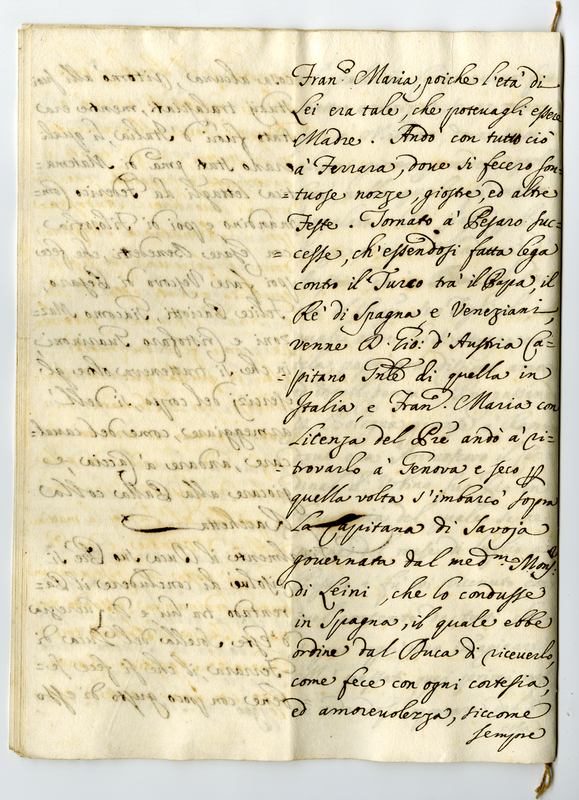 Fran.º Maria, poiche l'età di
Lei era tale, che potevagli essere
Madre. Andò con tutto ciò
à Ferrara, dove si fecero son=
tuose nozze, giostre, ed altre
Feste. Tornato à Pesaro suc=
cesse, ch'essendosi fatta lega
contro il Turco trà il Papa, il
Rè di Spagna e Veneziani
venne D. Gio: d'Austria Ca=
pitano Gnle di quella in
Italia, e Fran.º Maria con
Licenza del Pre andò à ri=
trovarlo à Genova, e seco p
quella volta s'imbarcò sopra
La Capitana di Savoja
governata dal med.mo Mons.r
di Leinì, che lo condusse
in Spagna, il quale ebbe
ordine dal Duca di riceverlo,
come fece con ogni cortesia,
ed amorevolezza, siccome
sempre